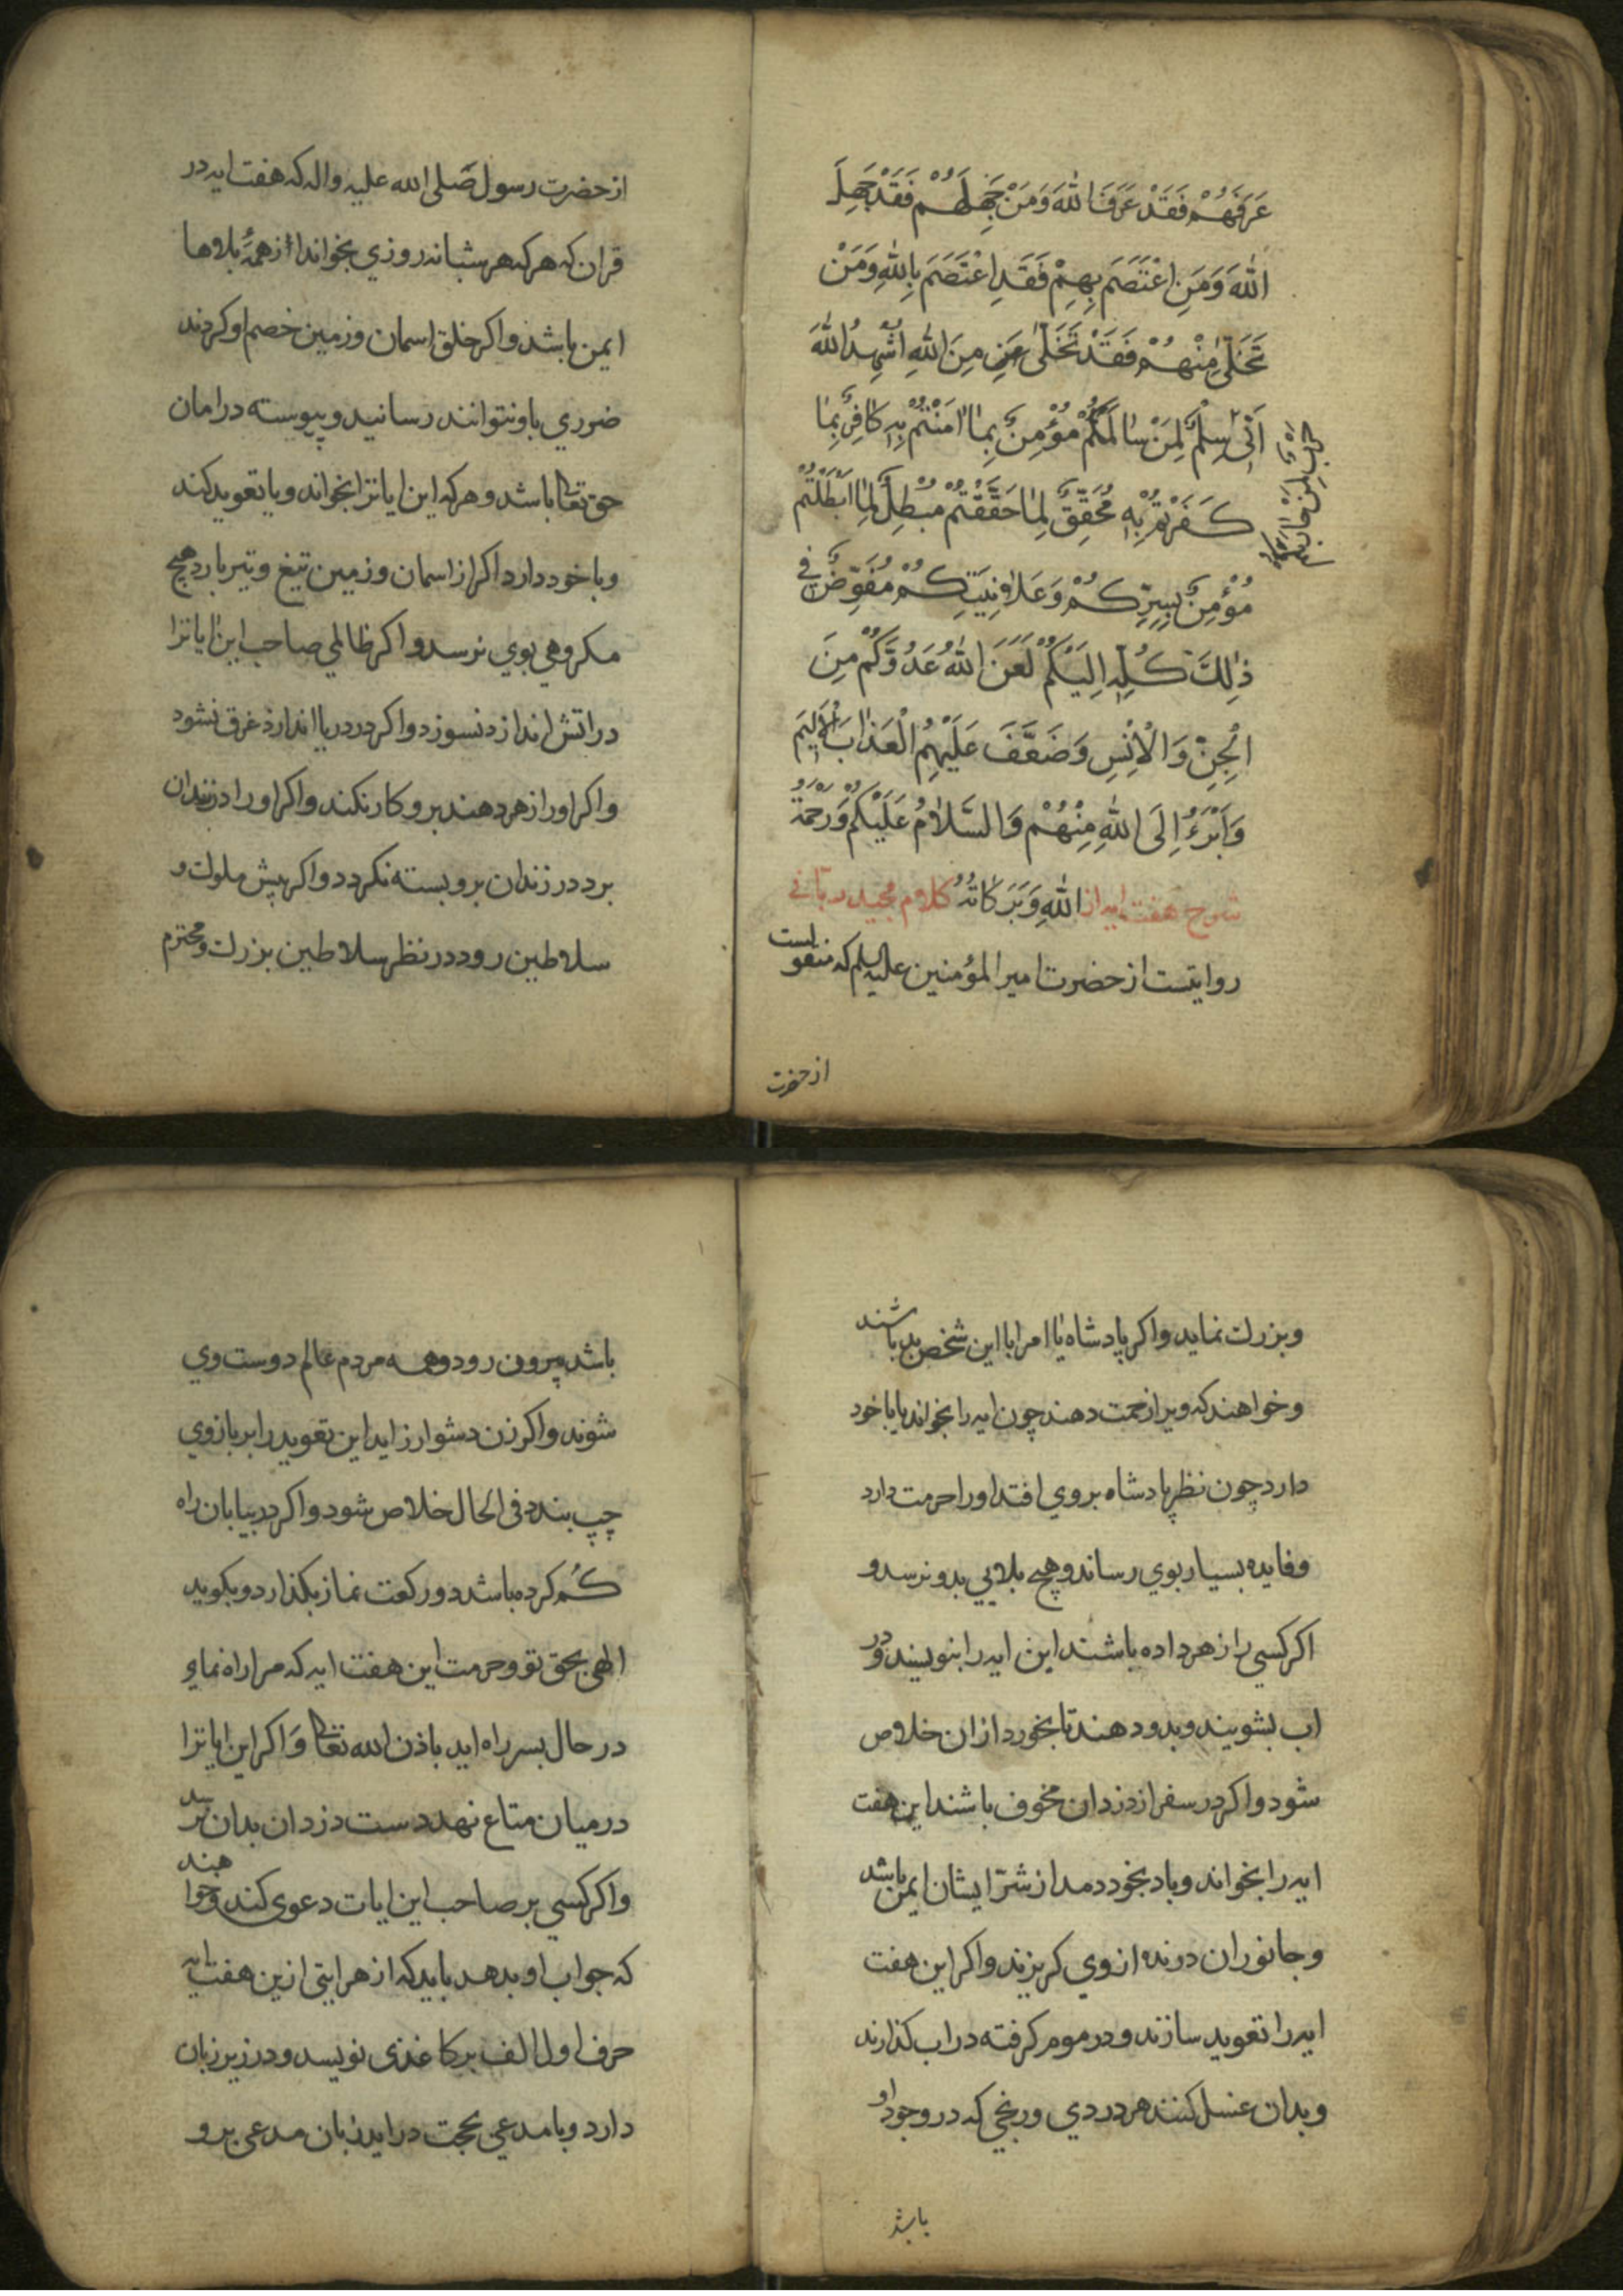 عَرَفَهُمْ فَقَدْ عَرَفَ اللهَ وَمَنْ جَهِلَهُمْ فَقَدْ جَهِلَ
اللهَ وَمَنِ اعْتَصَمَ بِهِمْ فَقَدِ اعْتَصَمَ بِاللهِ وَمَنْ
تَخَلّىٰ مِنْهُمْ فَقَدْ تَخَلّىٰ مِنَ اللهِ اُشْهِدُ اللهَ
اَنّى سِلْمٌ لِمَنْ سٰالَمَكُمْ مُؤْمِنٌ بِمٰا اٰمَنْتُمْ بِهِ كٰافِرٌ بِمٰا
حَرْبٌ لِمَنْ حٰارَبَكُمْ
كَفَرْتُمْ بِهِ مُحَقِّقٌ لِمٰا حَقَّقْتُمْ مُبْطِلٌ لِمٰا اَبْطَلْتُمْ
مُؤْمِنٌ بِسِرِّكُمْ وَعَلٰانِيَتِكُمْ مُفَوِّضٌ فِي
ذٰلِكَ كُلِّهِ اِلَيْكُمْ لَعَنَ اللهُ عَدُوَّكُمْ مِنَ
الْجِنِّ وَالْاِنْسِ وَضَعَّفَ عَلَيْهِمُ الْعَذٰابَ الْاَلِيمَ
وَاَبْرَءُ اِلَى اللهِ مِنْهُمْ وَالسَّلٰامُ عَلَيْكُمْ وَرَحْمَةُ
شرح هفت ايه از اللهِ وَبَرَكٰاتُهُ كلام مجيد ربانى
روايتست از حضرت امير المؤمنين عليه السلم كه منقولست
از حضرت
از حضرت رسول صَلى الله عليه واله كه هفت ايه در
قران كه هر كه هر شبانه روزي بخواند از همۀ بلاها
ايمن باشد واكر خلق اسمان وزمين خصم او كردند
ضرري باو نتوانند رسانيد وپيوسته در امان
حق تعا باشد وهر كه اين اياترا بخواند ويا تعويد كند
وبا خود دارد اكر از اسمان وزمين تيغ وتير بارد هيچ
مكروهي بوي نرسد واكر ظالمي صاحب اين اياترا
در اتش اندازد نسوزد واكر در دريا اندازد غرق نشود
واكر اورا زهر دهند برو كار نكند واكر اورا در زندان
برد در زندان برو بسته نكردد واكر پيش ملوك و
سلاطين رود در نظر سلاطين بزرك ومحترم
وبزرك نمايد واكر پادشاه يا امرا با اين شخص بد باشند
وخواهند كه ويرا زحمت دهند چون ايه را بخواند يا با خود
دارد چون نظر پادشاه بروي افتد اورا حرمت دارد
وفايده بسيار بوي رساند وهيچ بلايي بدو نرسد و
اكر كسي را زهر داده باشند اين ايه را بنويسند ودر
اب بشويند وبدو دهند تا بخورد ازان خلاص
شود واكر در سفر از دزدان مخوف باشند اين هفت
ايه را بخواند وباد بخود دمد از شرّ ايشان ايمن باشد
وجانوران درنده از وي كريزند واكر اين هفت
ايه را تعويد سازند ودر موم كرفته در اب كذارند
وبدان غسل كنند هر دردي ورنجي كه در وجود او
باشد
باشد بيرون رود وهمه مردم عالم دوست وي
شوند واكر زن دشوار زايد اين تعويد را بر بازوي
چپ بندد فى الحال خلاص شود واكر در بيابان راه
كُم كرده باشد دو ركعت نماز بكذارد وبكويد
الهى بحق تو وحرمت اين هفت ايه كه مرا راه نماي
در حال بسر راه ايد باذن الله تعا وَاكر اين اياترا
در ميان متاع نهد دست دزدان بدان نرسد
واكر كسي بر صاحب اين ايات دعوى كند وخواهند
كه جواب او بدهد بايد كه از هر ايتى ازين هفت ايه
حرف اول الف بر كاغذى نويسد ودر زير زبان
دارد وبا مدعي بحجت درايد زبان مدعى برو